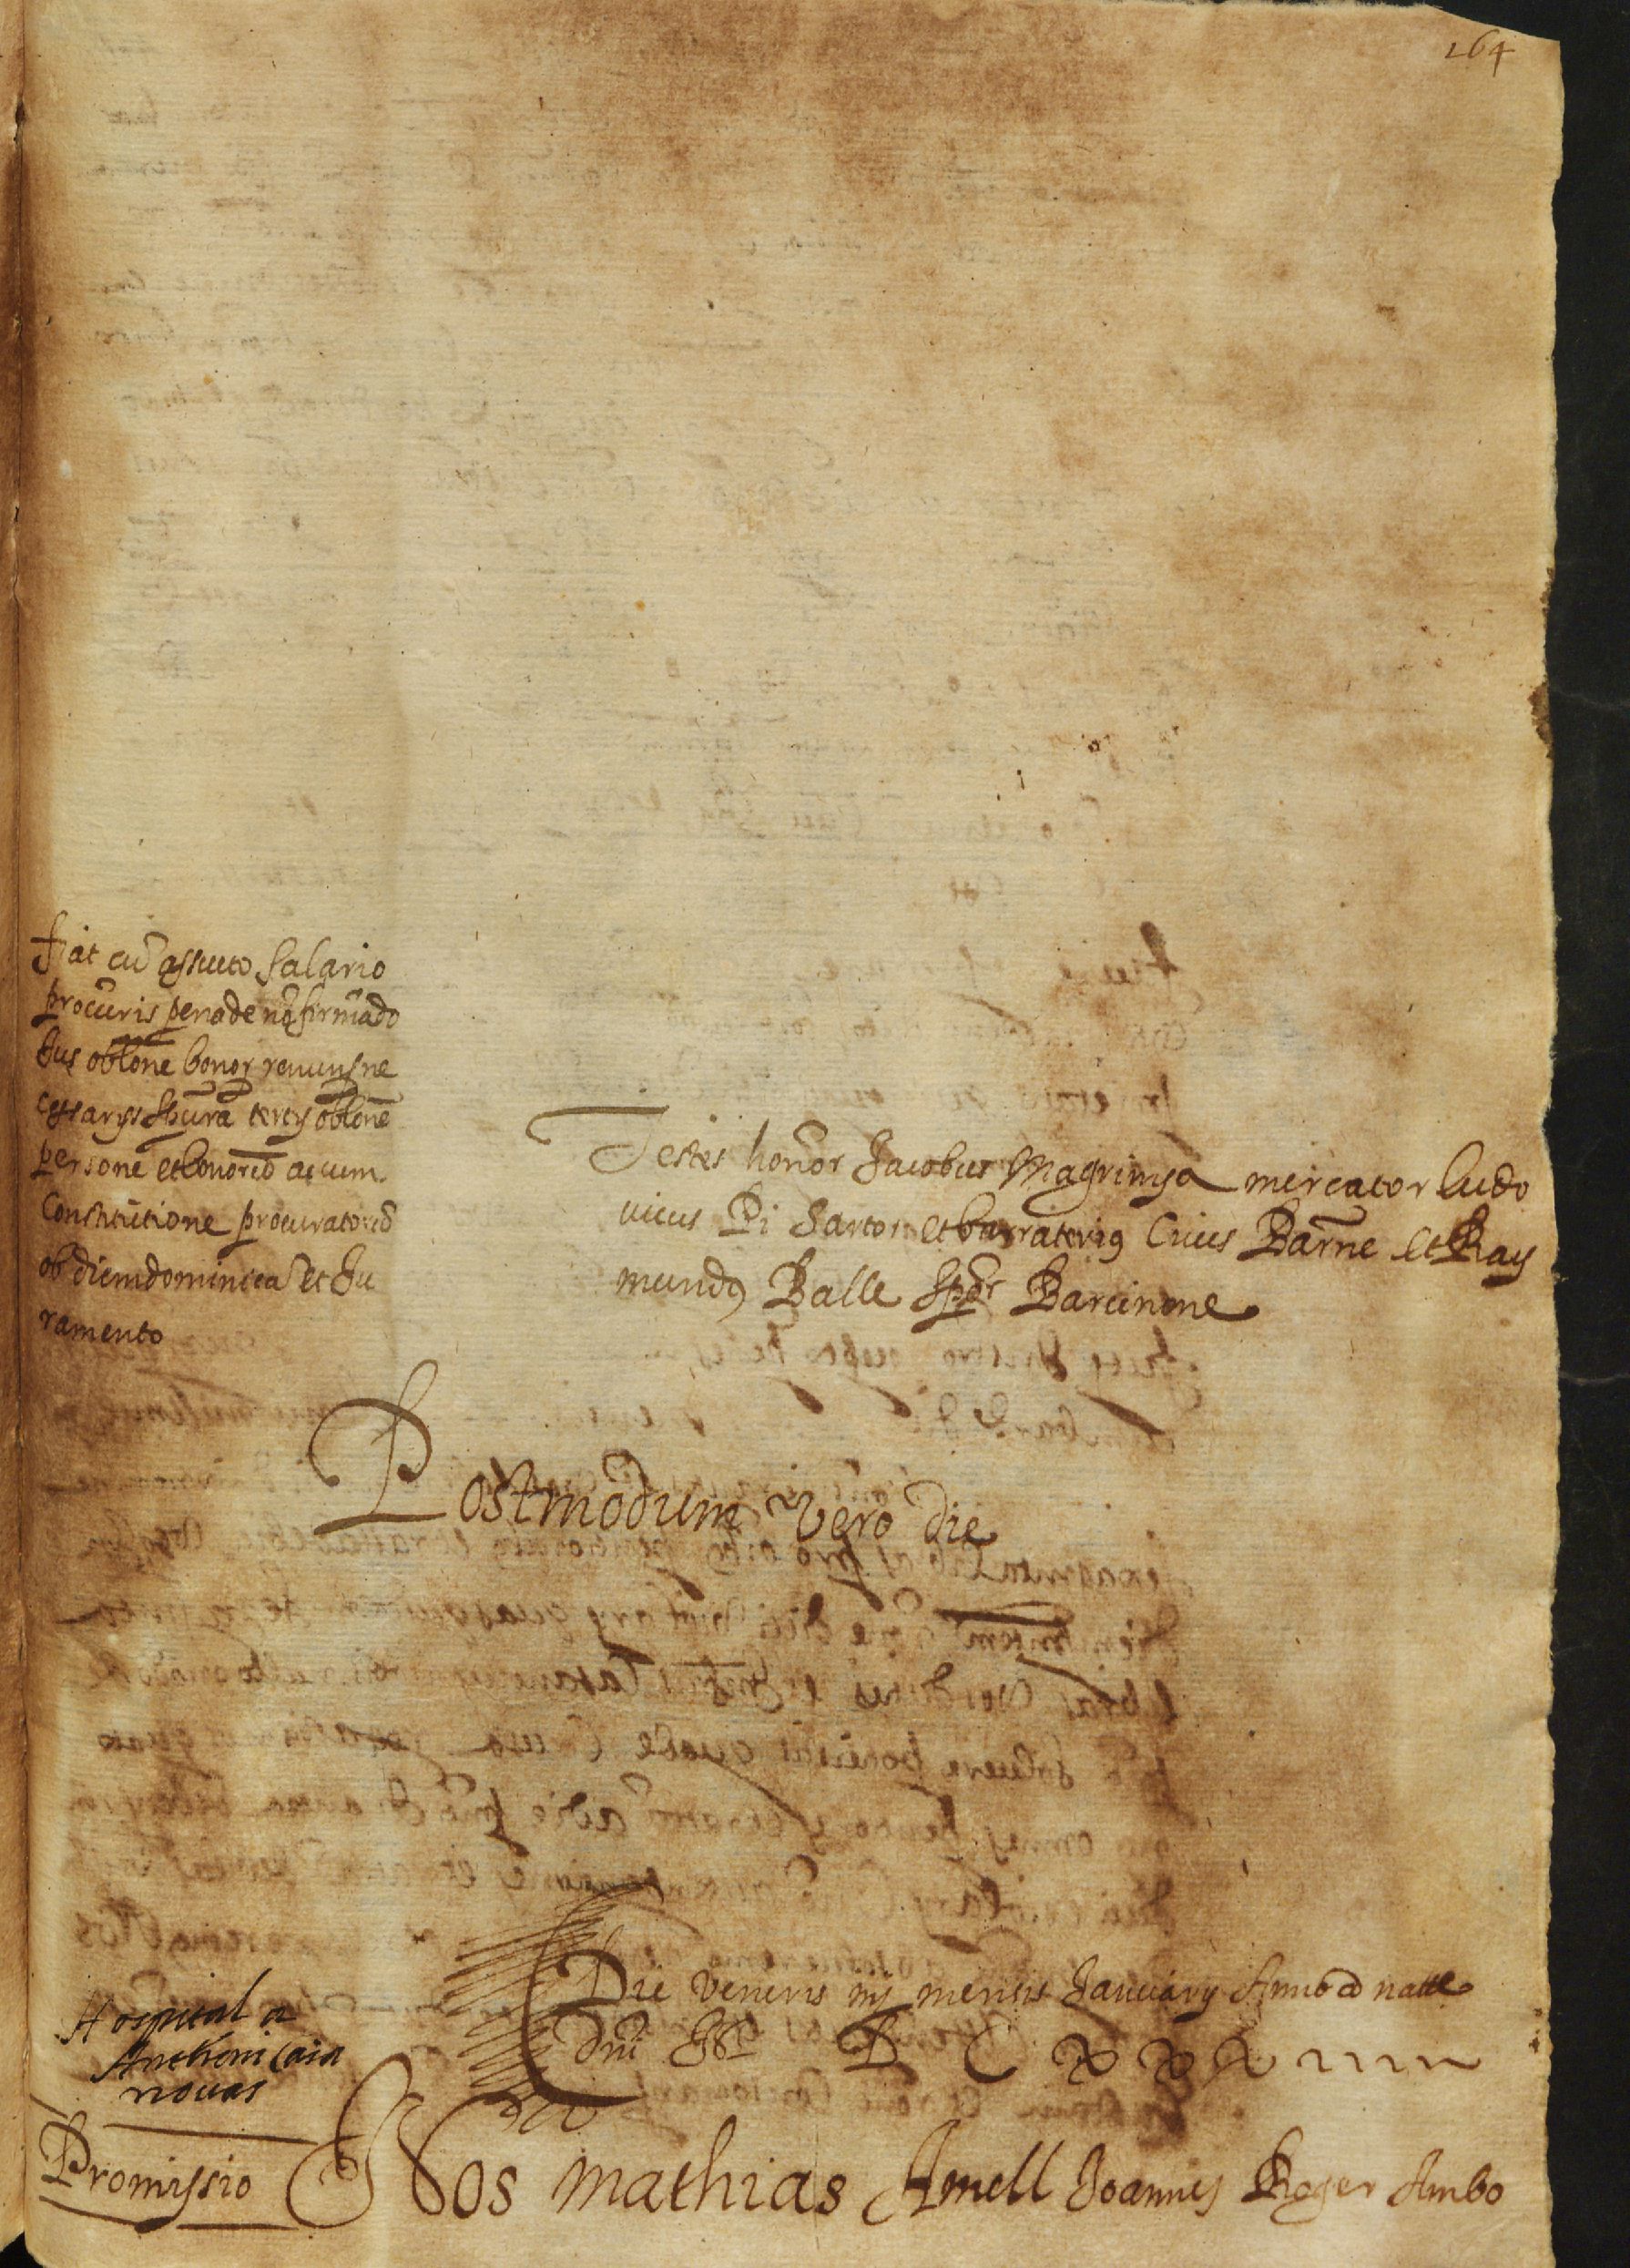 164
Fiat cũ assueto salario
procũris pena de nõ firmãdo
Jus oblõne bonor renuns ne
cessarys scpturã tercy oblõne
persone et bonorũ ac cum
Constitutione procuratorũ
ob diem dominicã et Ju
ramento
Testes honor Jacobus Magrinya mercator ludo
uicus Pi Sartor et barraterius Ciues Barne et Ray
mundus Balle Scptor Barcinone
Postmodum vero die
Die veneris iiij mensis January Anno a natte
Dni M D C x x x iiii
Hospital a
Anthoni Casa
nouas
Promissio
Nos Mathias Amell Joannes Roger Ambo